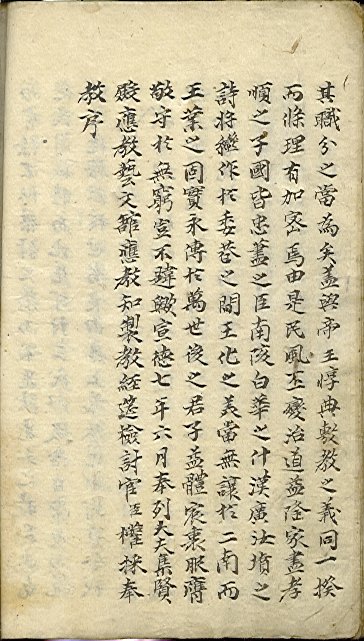 其職分之當為矣盖與帝王惇典敷教之義同一揆
而條理有加密焉由是民風丕變治道益隆家盡孝
順之子國皆忠藎之臣南陔白華之什漢廣汝墳之
詩將繼作於委巷之間王化之美當無讓於二南而
王業之固實永傳於萬世後之君子益體宸衷服膺
敬守於無窮豈不韙歟宣德七年六月奉列大夫集賢
殿應教藝文館應教知製教經筵檢討官臣權採奉
教序